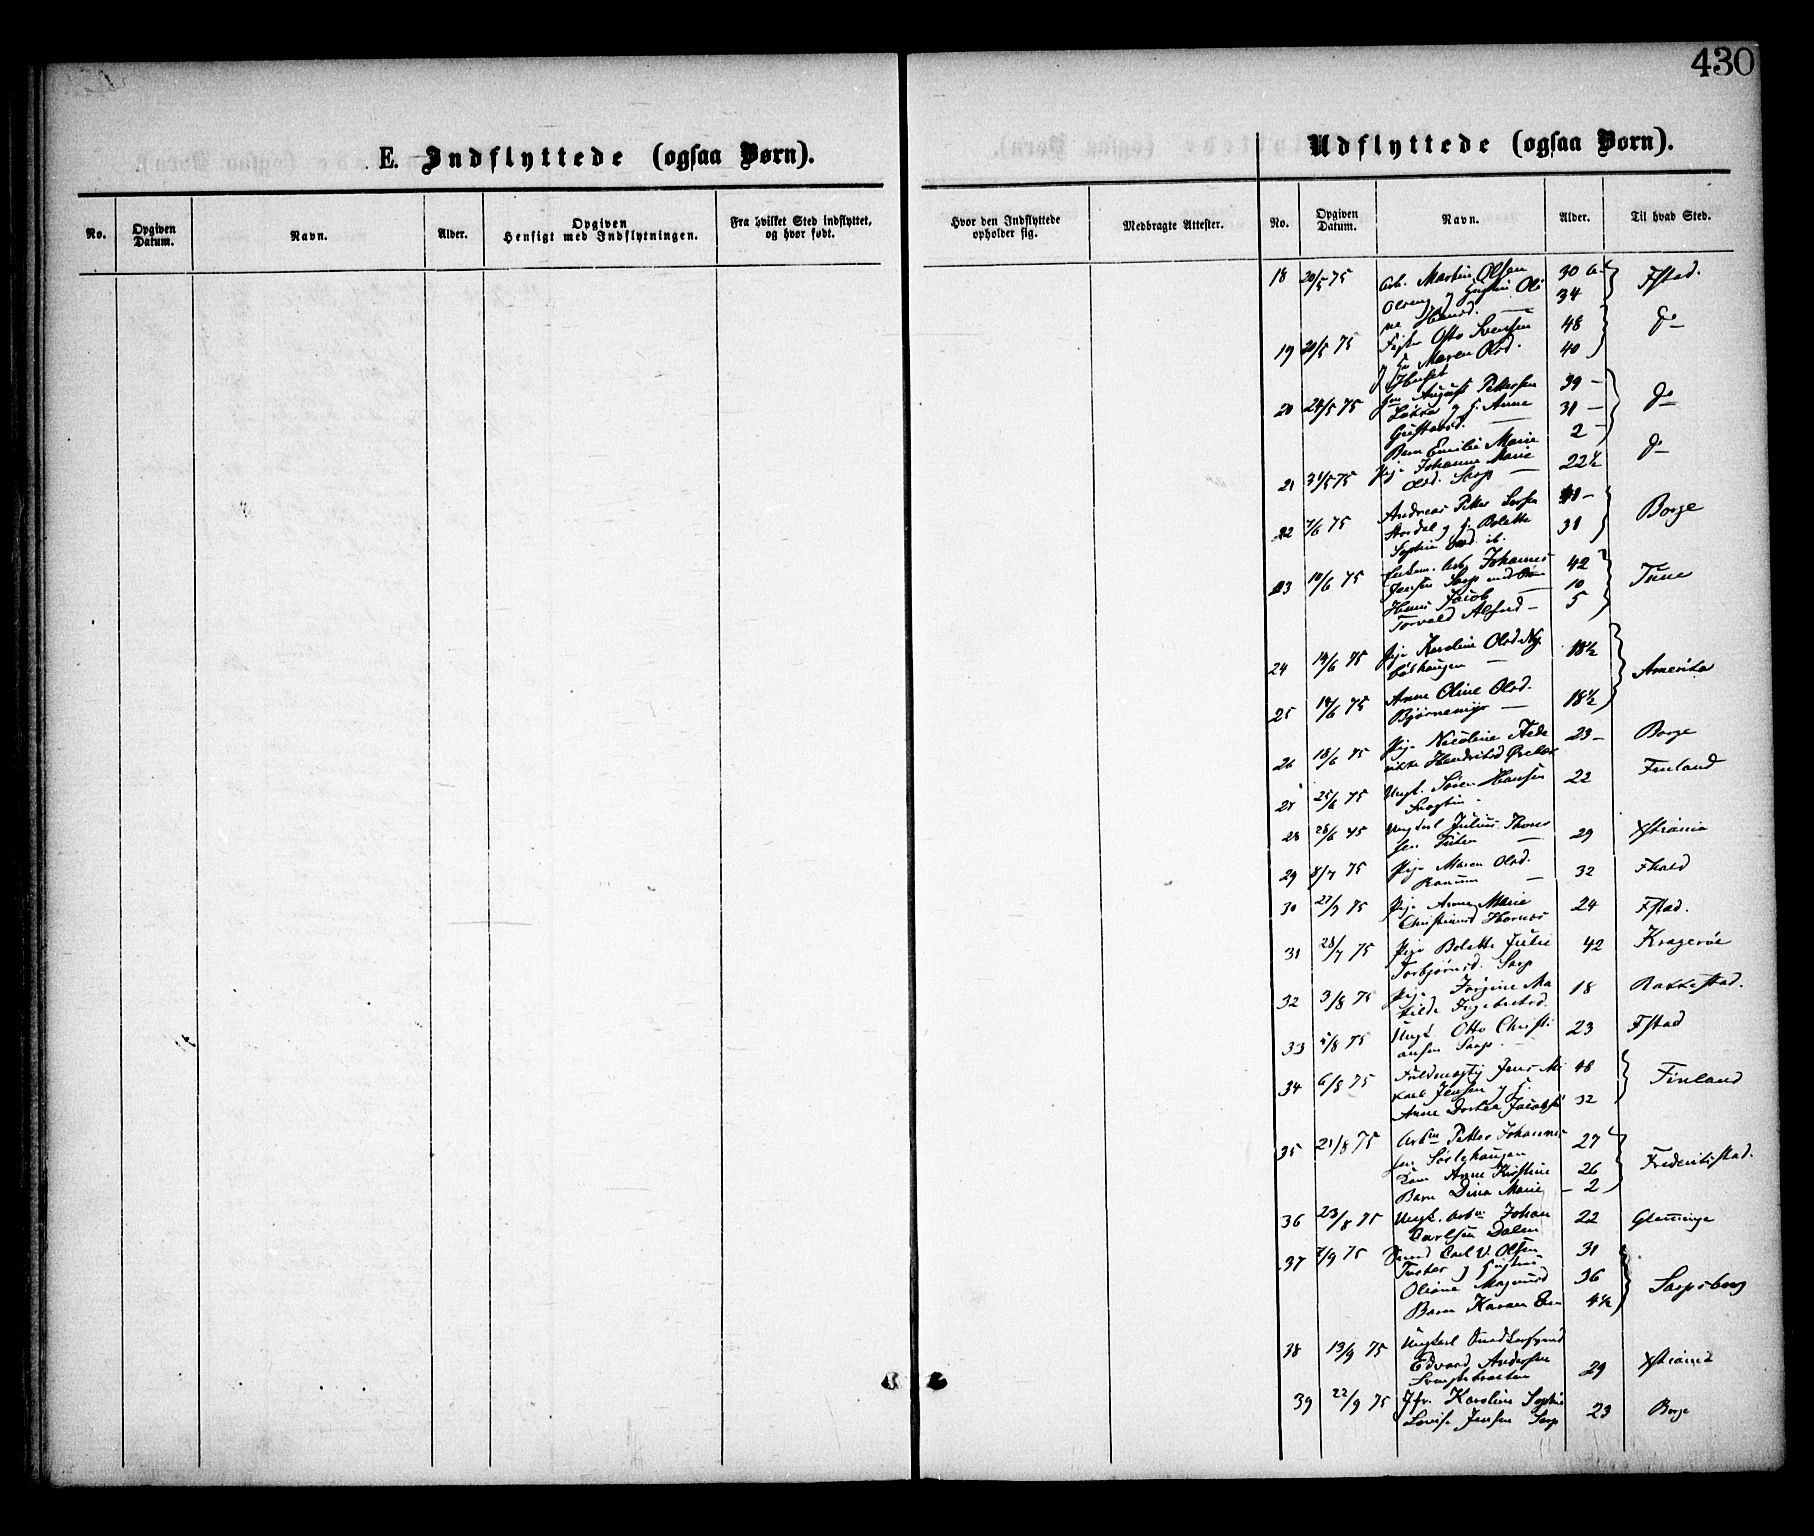 430
E. Indflyttede (ogsaa Børn).
Udflyttede (ogsaa Børn).
No. Opgiven Datum. Navn. Alder. Opgiven Hensigt med Indflytningen. Fra hvilket Sted indflyttet, og hvor født.
Hvor den Indflyttede opholder sig. Medbragte Attester. No. Opgiven Datum. Navn. Alder. Til hvad Sted.
18 20/5 75 Arb. Martin Olsen 30 Fstad.
og Hustru Oli 34
ne Hansd.
19 20/5 75 Otto Svensen 48 do
Maren Olsd. 40
20 24/5 75 August Pettersen 39 – do
Løkka og H. Anne 31 –
Gustavsd. –
Barn Emilie Marie 2 –
21 31/5 75 Pige Johanne Marie 22½ do
Olsd. Sarp –
22 7/6 75 Andreas Petter Borge
Stordal og H. Bolette 31
Sophie ib.
23 10/6 75 Arb. Johannes 42 Tune
Jensen Sarp med 10
Hans Jacob 5
Torvald Alfred –
24 14/6 75 Pige Karoline Olsd. 18½ Amerika
25 14/6 75 Anne Oline Olsd. 18½
Bjørnemyr –
26 18/6 75 Pige Nicoline Hede 23 – Borge
vikke
27 25/6 75 Ungk. Søren Hansen 22 Finland
28 28/6 75 Ungkarl Julius 29 Xstiania
29 8/7 75 Pige Maren Olsd. 32 Fhald
30 27/7 75 Pige Anne Marie 24 Fstad.
Christiansd Hornæs
31 28/7 75 Pige Bolette Julie 42 Kragerøe
Torbjørnsd. Sarp
32 3/8 75 Pige Jørgine Ma 18 Rakkestad.
tilde
33 5/8 75 Ungk. Otto Christi 23 Fstad
ansen Sarp.
34 6/8 75 Fuldmægtig Jens Mi 48 Finland
kael Jensen og H.
Anne Dorthea 32
35 21/8 75 Arbm Petter Johannes 27 Frederikstad.
sen
Kone Anne Kirstine 26
Barn Dina Marie – 2
36 23/8 75 Ungk. Arbm Johan 22 Glemminge
Carlsen Dalen
37 7/9 75 Carl V. Olsen 31 Sarpsborg
og Hustru
Oliane Magnusd 36
Barn Karen 4½
38 13/9 75 Ungkarl
Edvard Andersen 29 Xstiania
39 22/9 75 Jfr. Karoline Sophie 23 Borge
Lovise Jensen Sarp